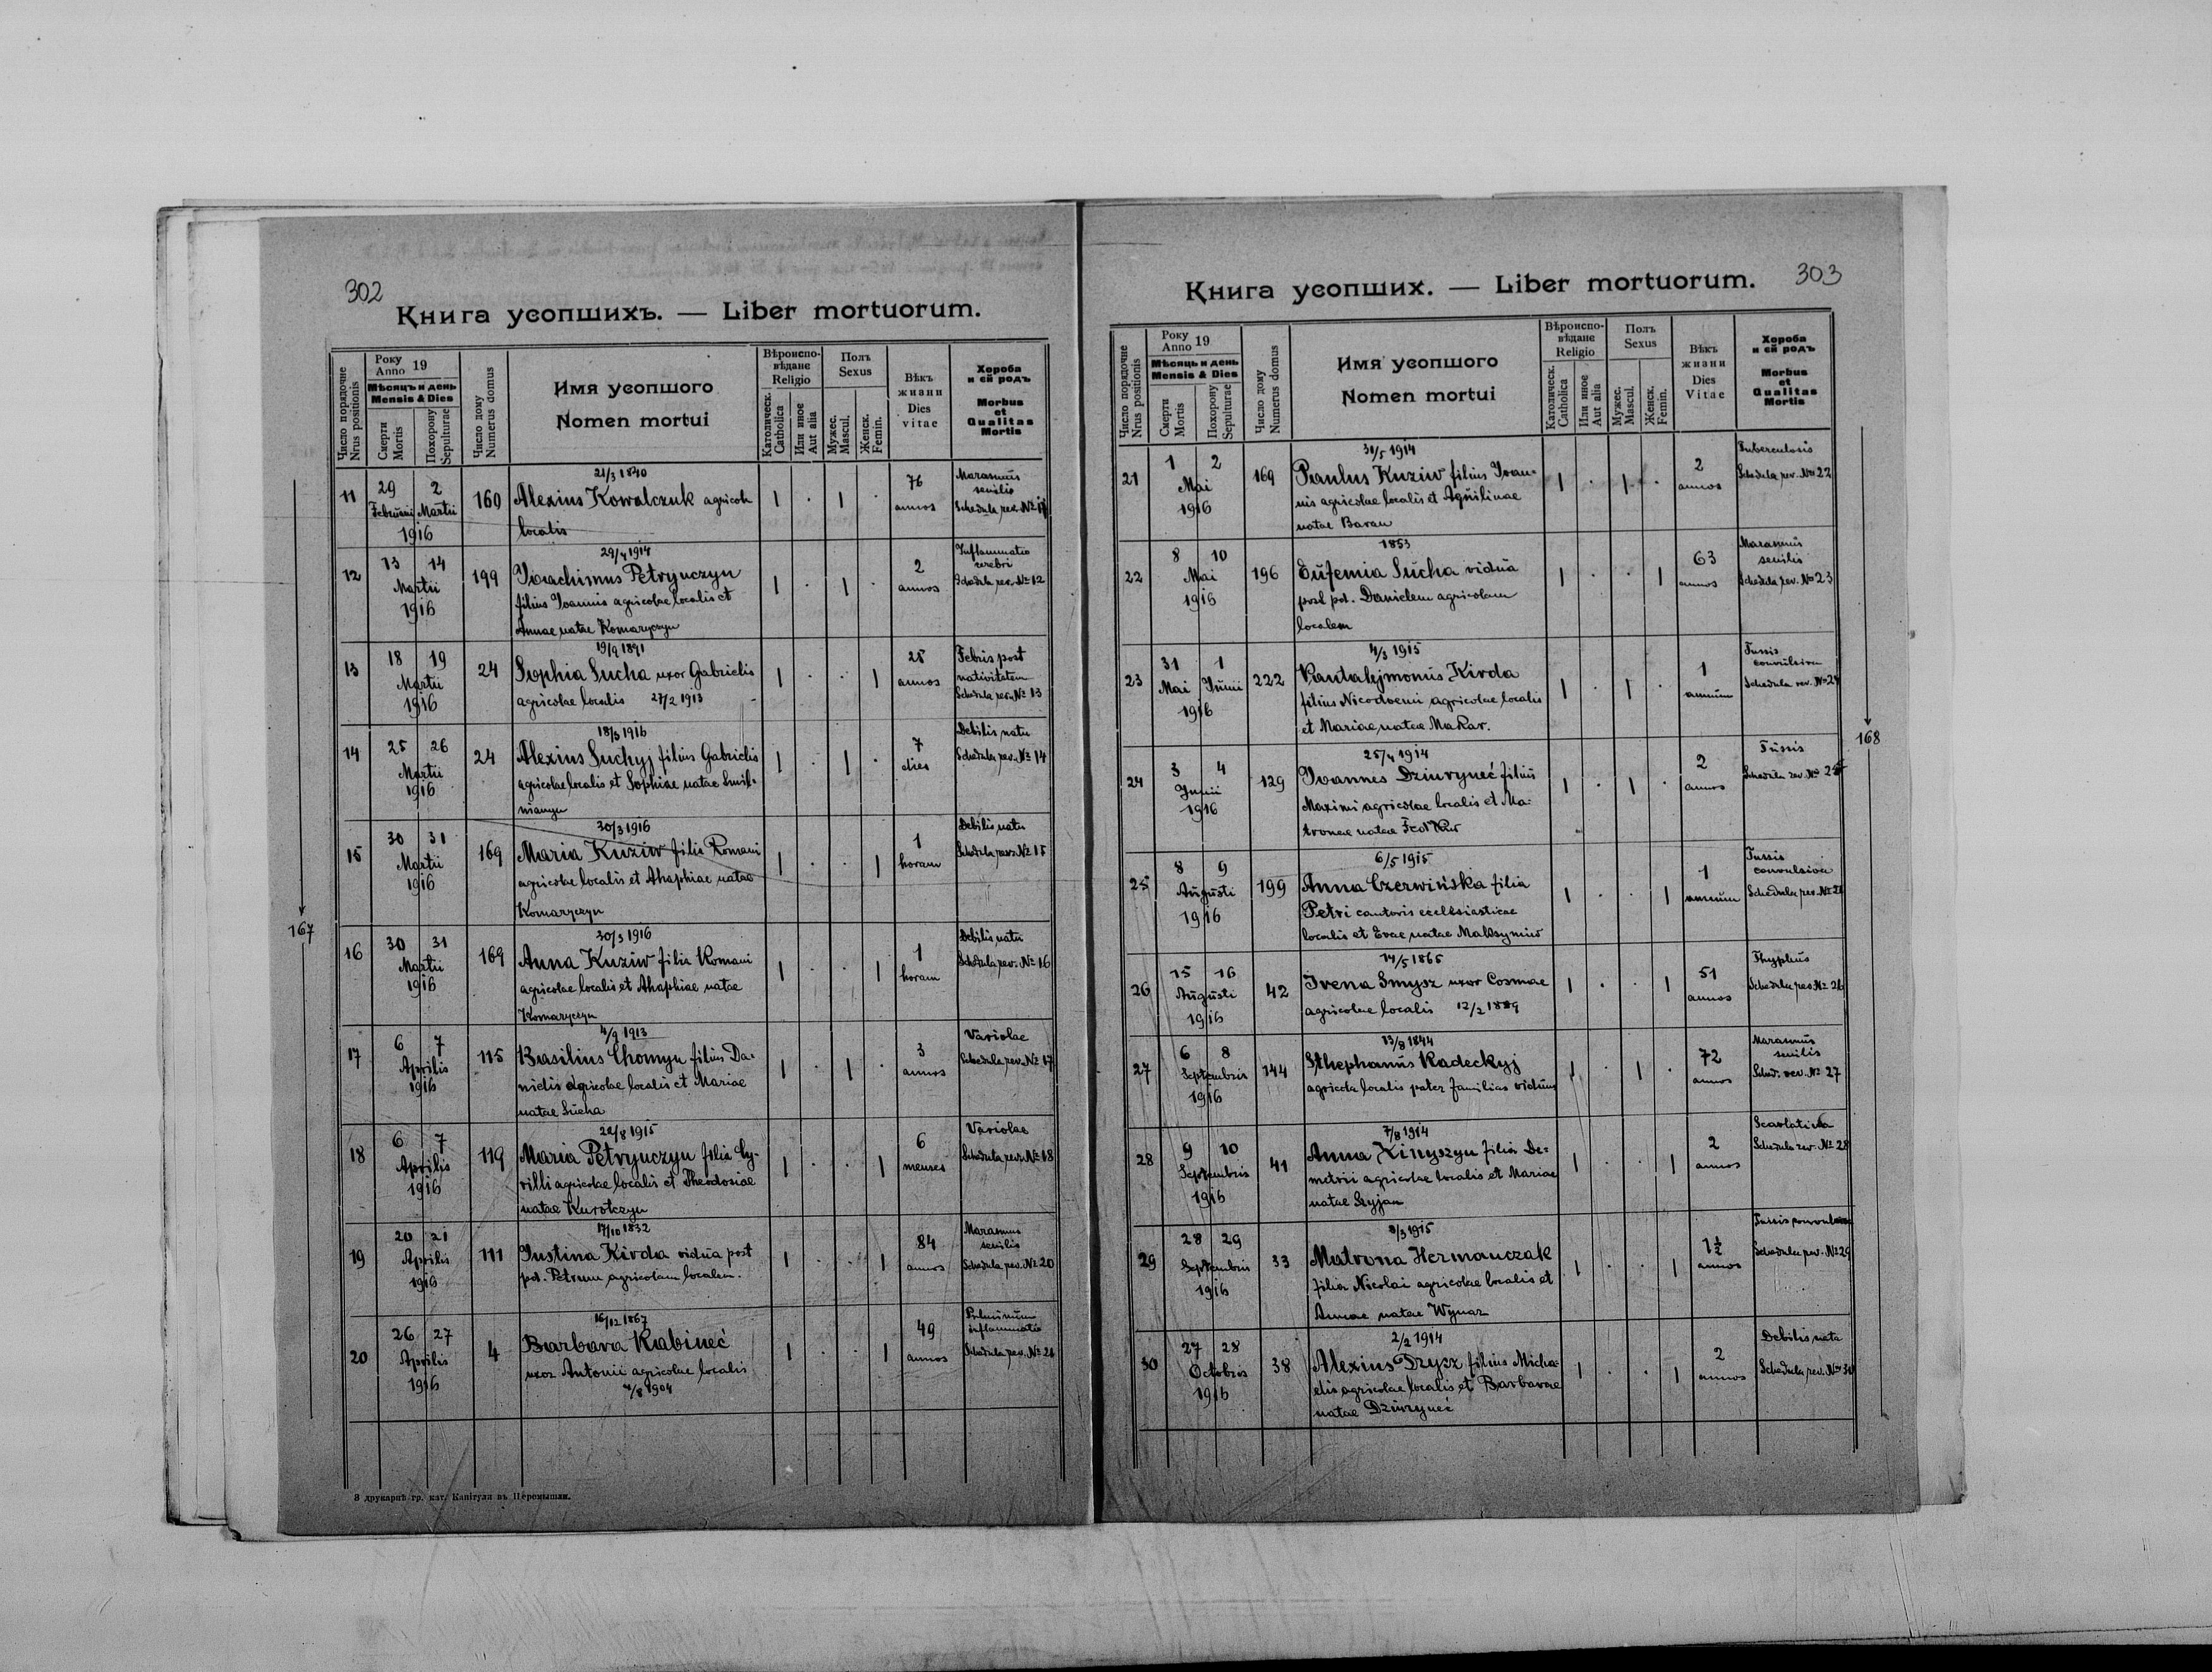 302
Книга усопшихъ. — Liber mortuorum.
Число порядочне
Nrus positionis
Року
Anno 19
Мѣсяцъ и день
Mensis & Dies
Смерти
Mortis
Похорону
Sepulturae
Число дому
Numerus domus
Имя усопшого
Nomen mortui
Вѣроиспо-
вѣдане
Religio
Католическ.
Catholica
Или иное
Aut alia
Полъ
Sexus
Мужес.
Mascul.
Женск.
Femin.
Вѣкъ
жизни
Dies
vitae
Хороба
и єй родъ
Morbus
et
Qualitas
Mortis
21/3 1840
11 29 Februarii 2 Martii 1916 160 Alexius Kowalczuk agricola
localis
76 annos
Marasmus
senilis
29/4 1914
12 13 14 Martii 1916 199 Ioachimus Petrynczyn
filius Ioannis agricolae localis et
Annae natae Komaryczyn
2 annos
Inflammatio
cerebri
Schedula rev. № 12
19/9 1891
13 18 19 Martii 1916 24 Sophia Sucha uxor Gabrielis
agricolae localis 27/2 1913
25 annos
Febris post
nativitatem
Schedula rev. № 13
18/3 1916
14 25 26 Martii 1916 24 Alexius Suchyj filius Gabrielis
agricolae localis et Sophiae natae
7 dies
Debilis natu
Schedula rev. № 14
30/3 1916
15 30 31 Martii 1916 169 Maria Kuziw filia Romani
agricolae localis et Ahaphiae natae
Komaryczyn
1 horam
Debilis natu
Schedula rev. № 15
30/3 1916
16 30 31 Martii 1916 169 Anna Kuziw filia Romani
agricolae localis et Ahaphiae natae
Komaryczyn
1 horam
Debilis natu
Schedula rev. № 16
4/9 1913
17 6 7 Aprilis 1916 115 Basilius Chomyn filius Da-
nielis agricolae localis et Mariae
natae Sucha
3 annos
Variolae
Schedula rev. № 17
22/8 1915
18 6 7 Aprilis 1916 119 Maria Petrynczyn filia Cy-
rilli agricolae localis et Theodosiae
natae Kurotczyn
6 menses
Variolae
Schedula rev. № 18
17/10 1832
19 20 21 Aprilis 1916 111 Iustina Kirda vidua post
pd. Petrum agricolam localem.
84 annos
Marasmus
senilis
Schedula rev. № 20
16/12 1867
20 26 27 Aprilis 1916 4 Barbara Rabineć
uxor Antonii agricolae localis
1904
49 annos
Pulmonum
inflammatio
Schedula rev. № 21
167
З друкарнѣ гр. кат. Капітули въ Перемышли.
303
Книга усопших. — Liber mortuorum.
Число порядочне
Nrus positionis
Року
Anno 19
Мѣсяцъ и день
Mensis & Dies
Смерти
Mortis
Похорону
Sepulturae
Число дому
Numerus domus
Имя усопшого
Nomen mortui
Вѣроиспо-
вѣдане
Religio
Католическ.
Catholica
Или иное
Aut alia
Полъ
Sexus
Мужес.
Mascul.
Женск.
Femin.
Вѣкъ
жизни
Dies
Vitae
Хороба
и єй родъ
Morbus
et
Qualitas
Mortis
30/5 1914
21 1 2 Mai 1916 169 Paulus Kuziw filius Ioan-
nis agricolae localis et Aquilinae
natae Baran
2 annos
Tuberculosis
Schedula rev. № 22
1853
22 8 10 Mai 1916 196 Eufemia Sucha vidua
post pd. Danielem agricolam
localem
63 annos
Marasmus
senilis
Schedula rev. № 23
4/3 1915
23 31 Mai 1 Junii 1916 222 Pantalejmonus Kirda
filius Nicodemi agricolae localis
et Mariae natae Makar.
1 annum
Tussis
convulsiva
Schedula rev. № 24
25/4 1914
24 3 4 Junii 1916 129 Ioannes Dziuryneć filius
Maximi agricolae localis et Ma-
tronae natae Fedkiw
2 annos
Tussis
Schedula rev. № 25
6/5 1915
25 8 9 Augusti 1916 199 Anna Czerwińska filia
Petri cantoris ecclesiasticae
localis et Evae natae Maksymiw
1 annum
Tussis
convulsiva
14/5 1865
26 15 16 Augusti 1916 42 Irena Smysz uxor Cosmae
agricolae localis 12/2 1889
51 annos
Thyphus
Schedula rev. № 26
13/8 1844
27 6 8 Septembris 1916 144 Sthephanus Radeckyj
agricola localis pater familias viduus
72 annos
Marasmus
senilis
Sched. rev. № 27
7/8 1914
28 9 10 Septembris 1916 41 Anna Kinyszyn filia De-
metrii agricolae localis et Mariae
natae Szyjan
2 annos
Scarlatina
Schedula rev. № 28
8/3 1915
29 28 29 Septembris 1916 33 Matrona Hermanczak
filia Nicolai agricolae localis et
Annae natae Wynar
1½ annos
Tussis convulsiva
Schedula rev. № 29
2/2 1914
30 27 28 Octobris 1916 38 Alexius Dzysz filius Micha-
elis agricolae localis et Barbarae
natae Dziuryneć
2 annos
Debilis nata
Schedula rev. № 30
168